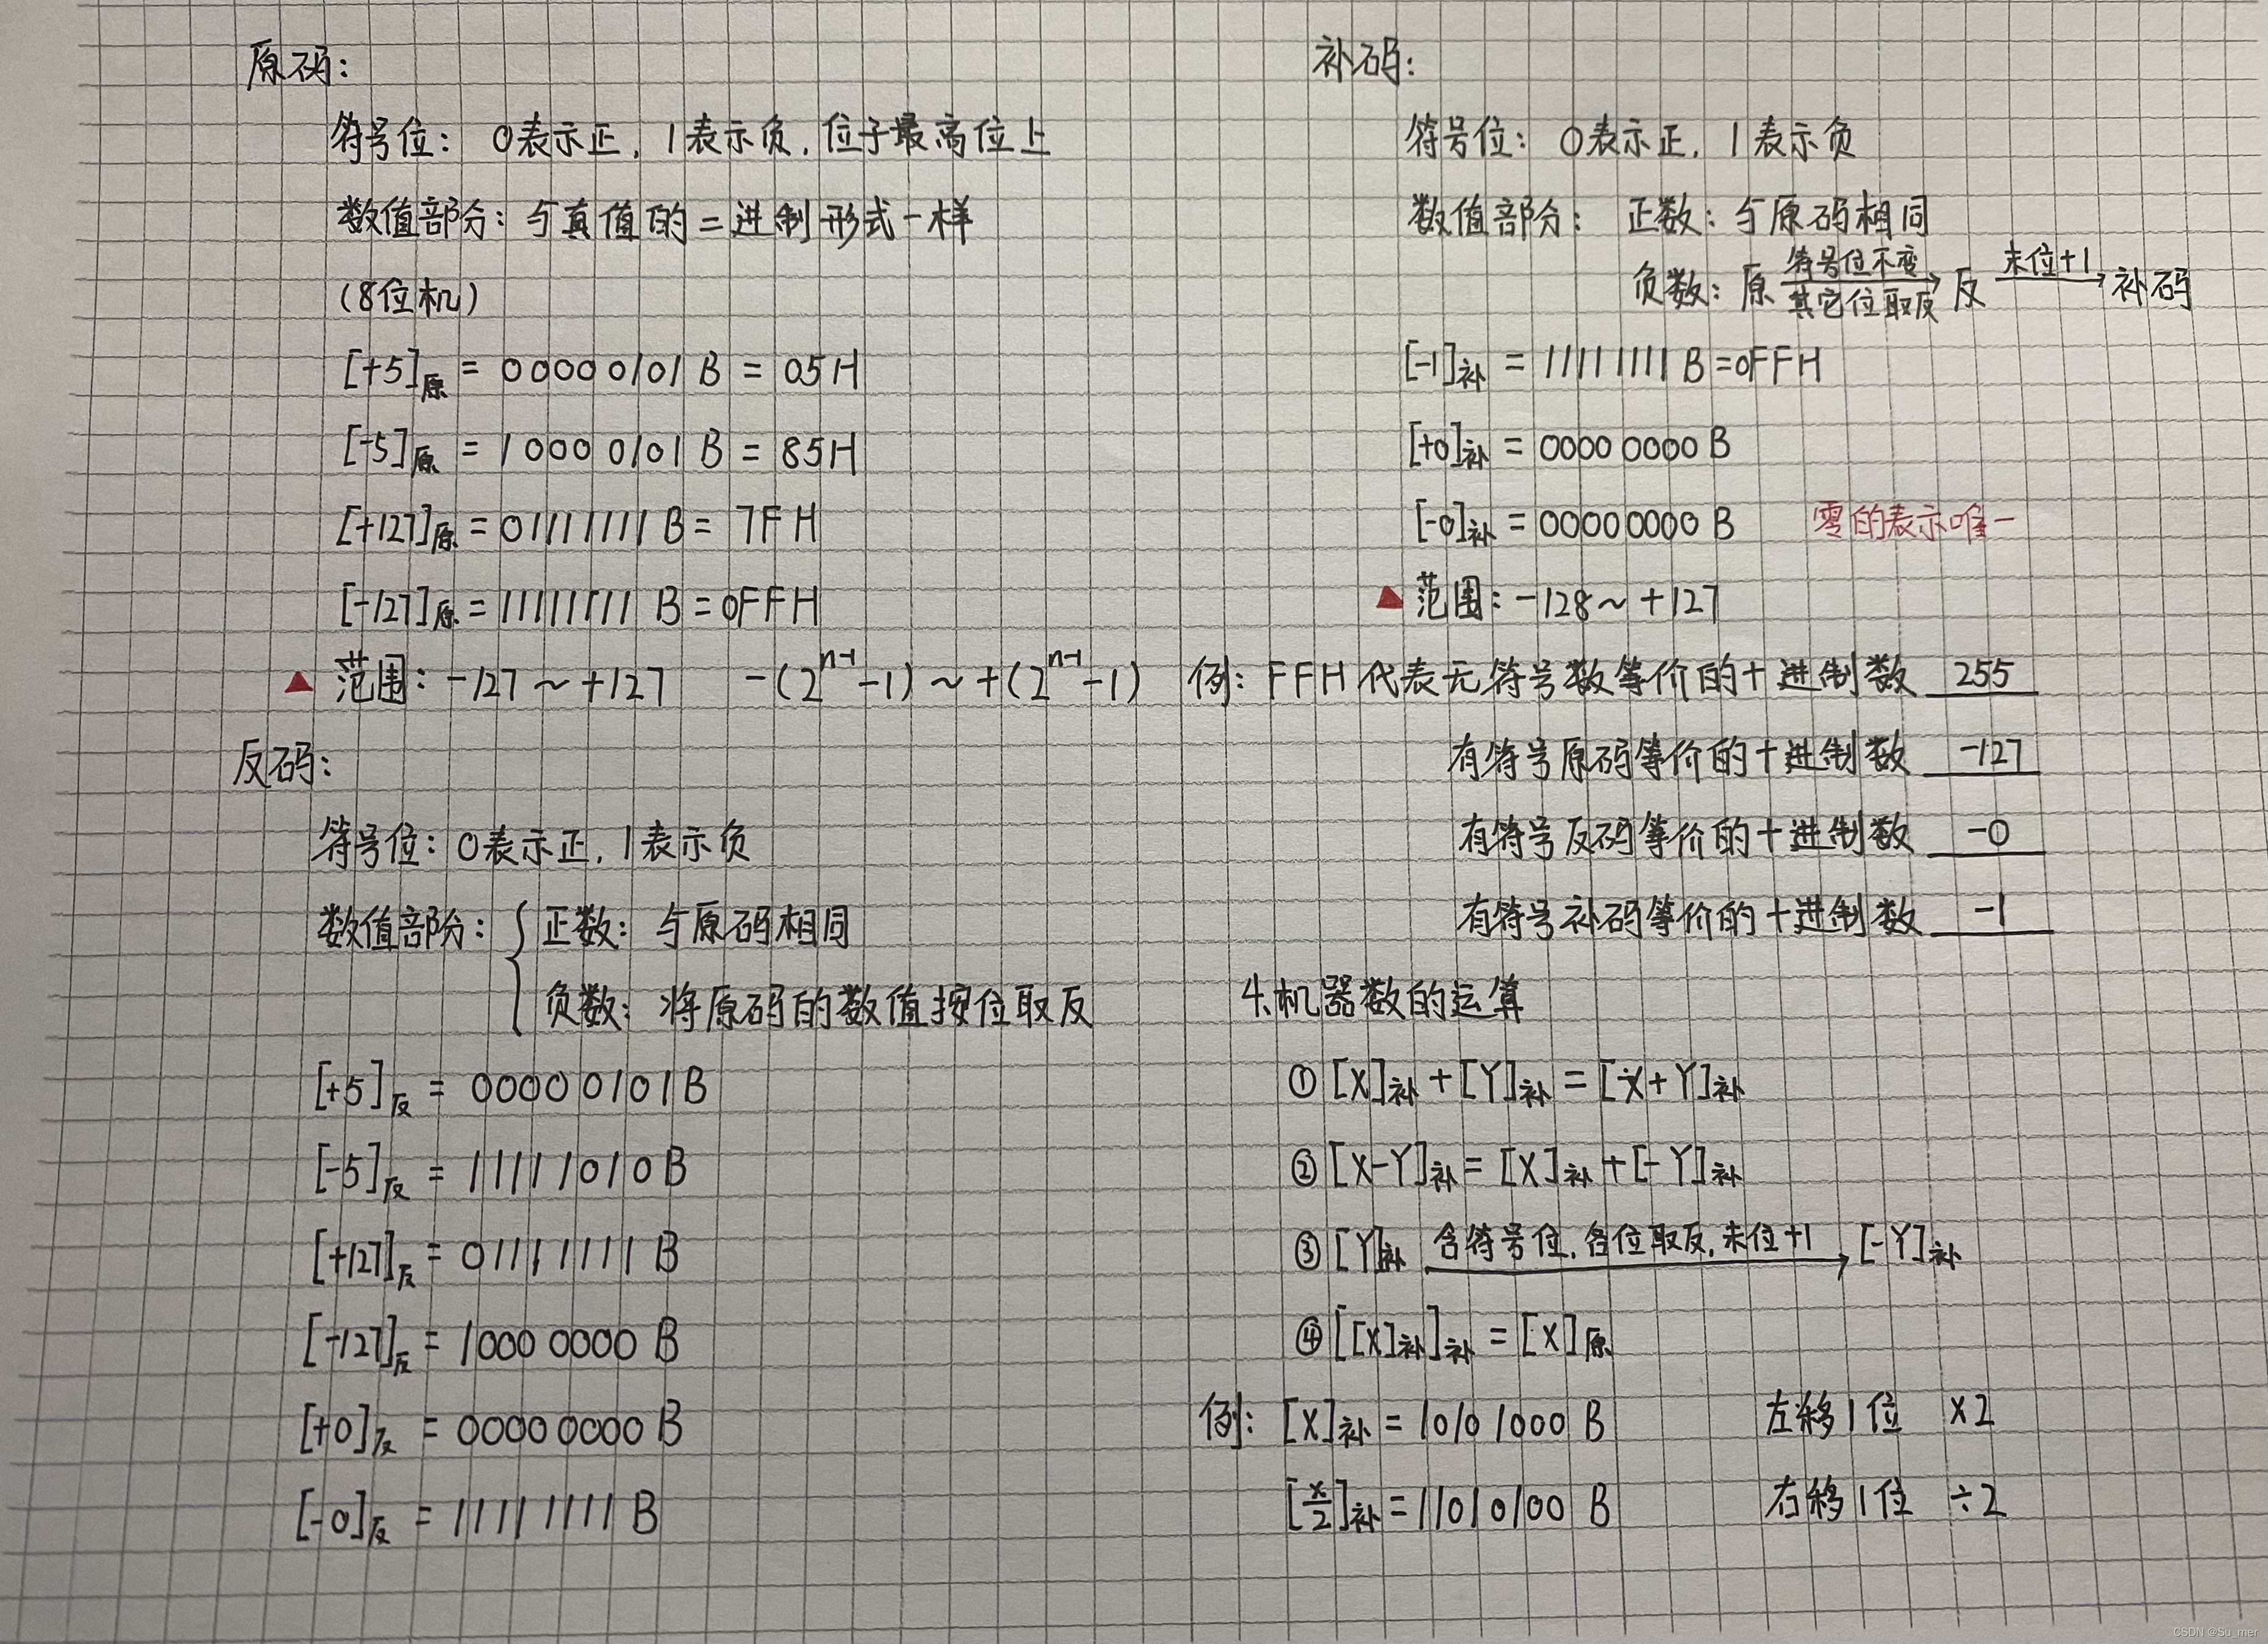 原码:
符号位: 0表示正, 1表示负, 位于最高位上
数值部分: 与真值的二进制形式一样
(8位机)
[+5]原 = 00000101 B = 05H
[-5]原 = 10000101 B = 85H
[+127]原 = 01111111 B = 7FH
[-127]原 = 11111111 B = 0FFH
▲ 范围: -127 ~ +127 -(2^{n-1}-1) ~ +(2^{n-1}-1)
反码:
符号位: 0表示正, 1表示负
数值部分: { 正数: 与原码相同
负数: 将原码的数值按位取反
[+5]反 = 00000101B
[-5]反 = 11111010B
[+127]反 = 01111111 B
[-127]反 = 1000 0000 B
[+0]反 = 0000 0000 B
[-0]反 = 1111 1111 B
补码:
符号位: 0表示正, 1表示负
数值部分: 正数: 与原码相同
负数: 原 符号位不变 其它位取反 → 反 末位+1 → 补码
[-1]补 = 11111111 B = 0FFH
[+0]补 = 0000 0000 B
[-0]补 = 00000000 B 零的表示唯一
▲ 范围: -128 ~ +127
例: FFH 代表无符号数等价的十进制数 255
有符号原码等价的十进制数 -127
有符号反码等价的十进制数 -0
有符号补码等价的十进制数 -1
4.机器数的运算
① [X]补 + [Y]补 = [X+Y]补
② [X-Y]补 = [X]补 + [-Y]补
③ [Y]补 含符号位, 各位取反, 末位+1 → [-Y]补
④ [[X]补]补 = [X]原
例: [X]补 = 1010 1000 B 左移1位 ×2
[x/2]补 = 11010100 B 右移1位 ÷2
CSDN @Su_mer